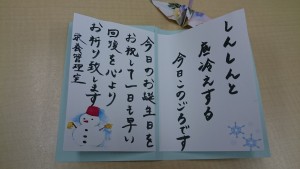 しんしんと
底冷えする
今日このごろです
今日のお誕生日を
お祝して一日も早い
回復を心より
お祈り致します
栄養管理室